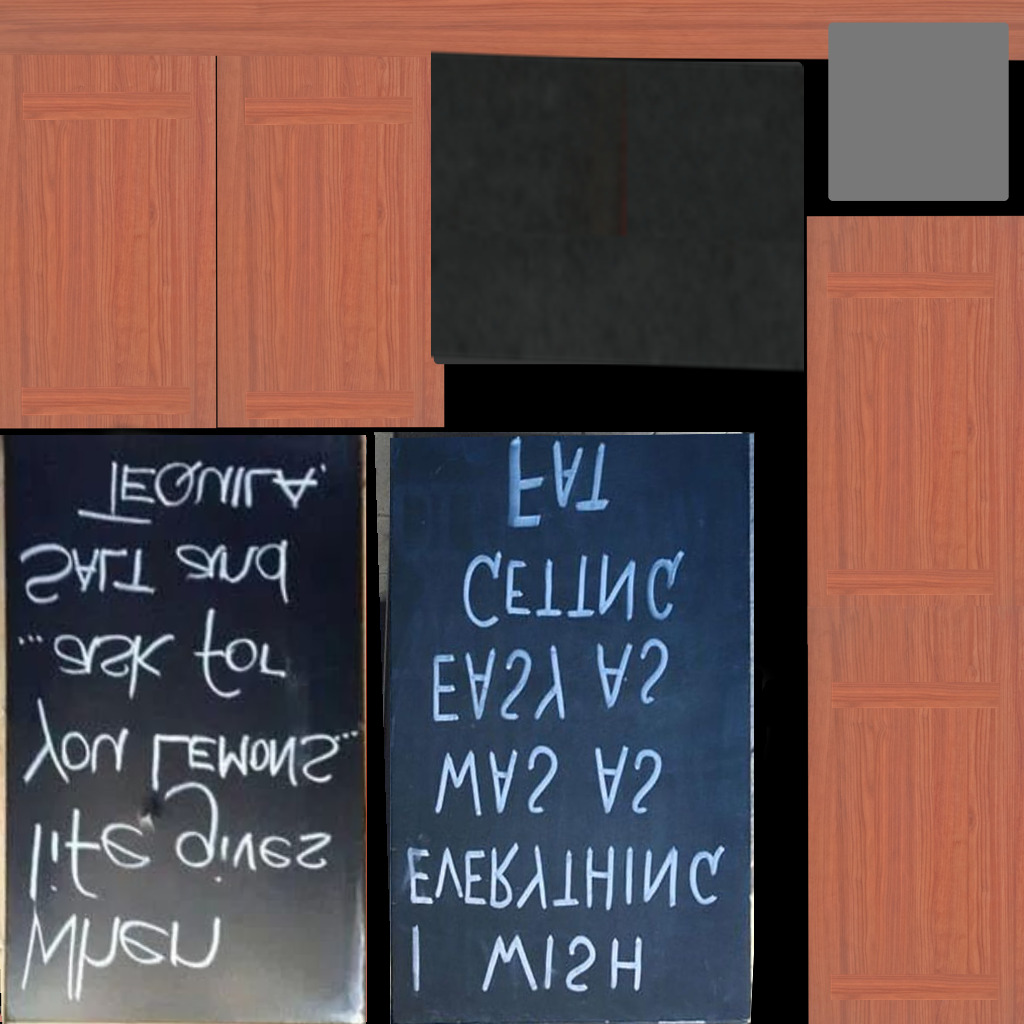 When
life gives
you Lemons...
...ask for
SALT and
TEQUILA.
I WISH
EVERYTHING
WAS AS
EASY AS
GETTING
FAT